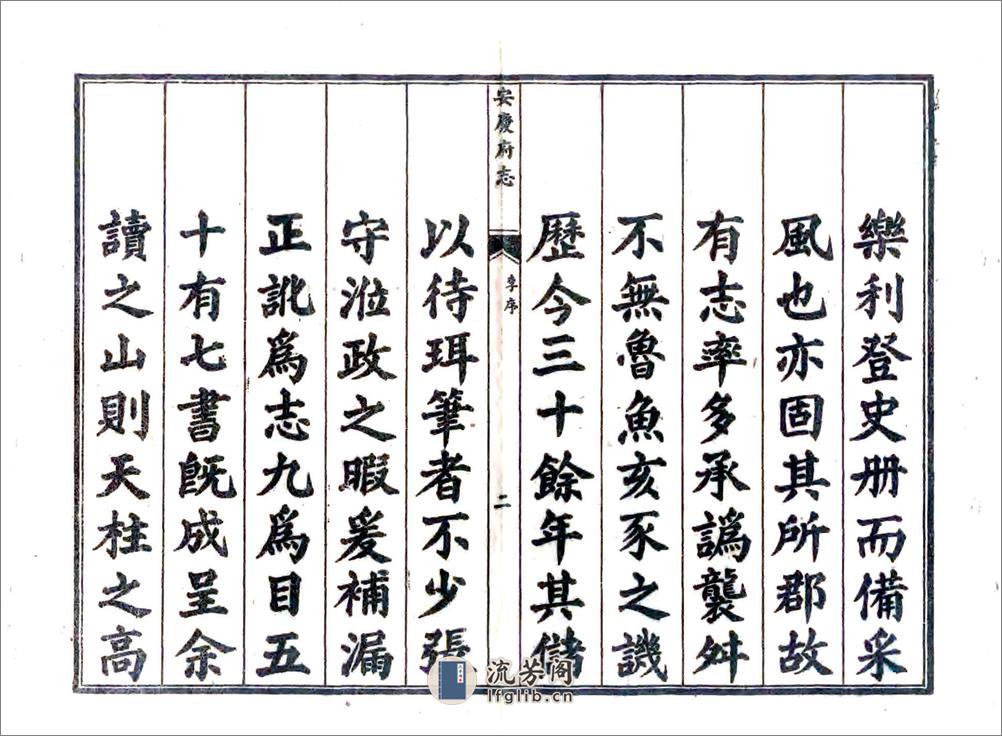 樂利登史册而備采
風也亦固其所郡故
有志率多承譌襲舛
不無魯魚亥豕之譏
歷今三十餘年其儲
安慶府志
李序
二
以待珥筆者不少張
守涖政之暇爰補漏
正訛爲志九爲目五
十有七書旣成呈余
讀之山則天柱之高
流芳阁
lfglib.cn